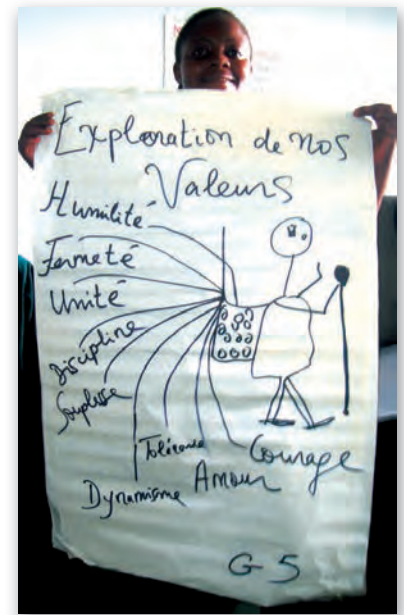 Exploration de nos
Valeurs
Humilité
Fermeté
Unité
Discipline
Souplesse
Dynamisme
Tolérance
Amour
Courage
G 5